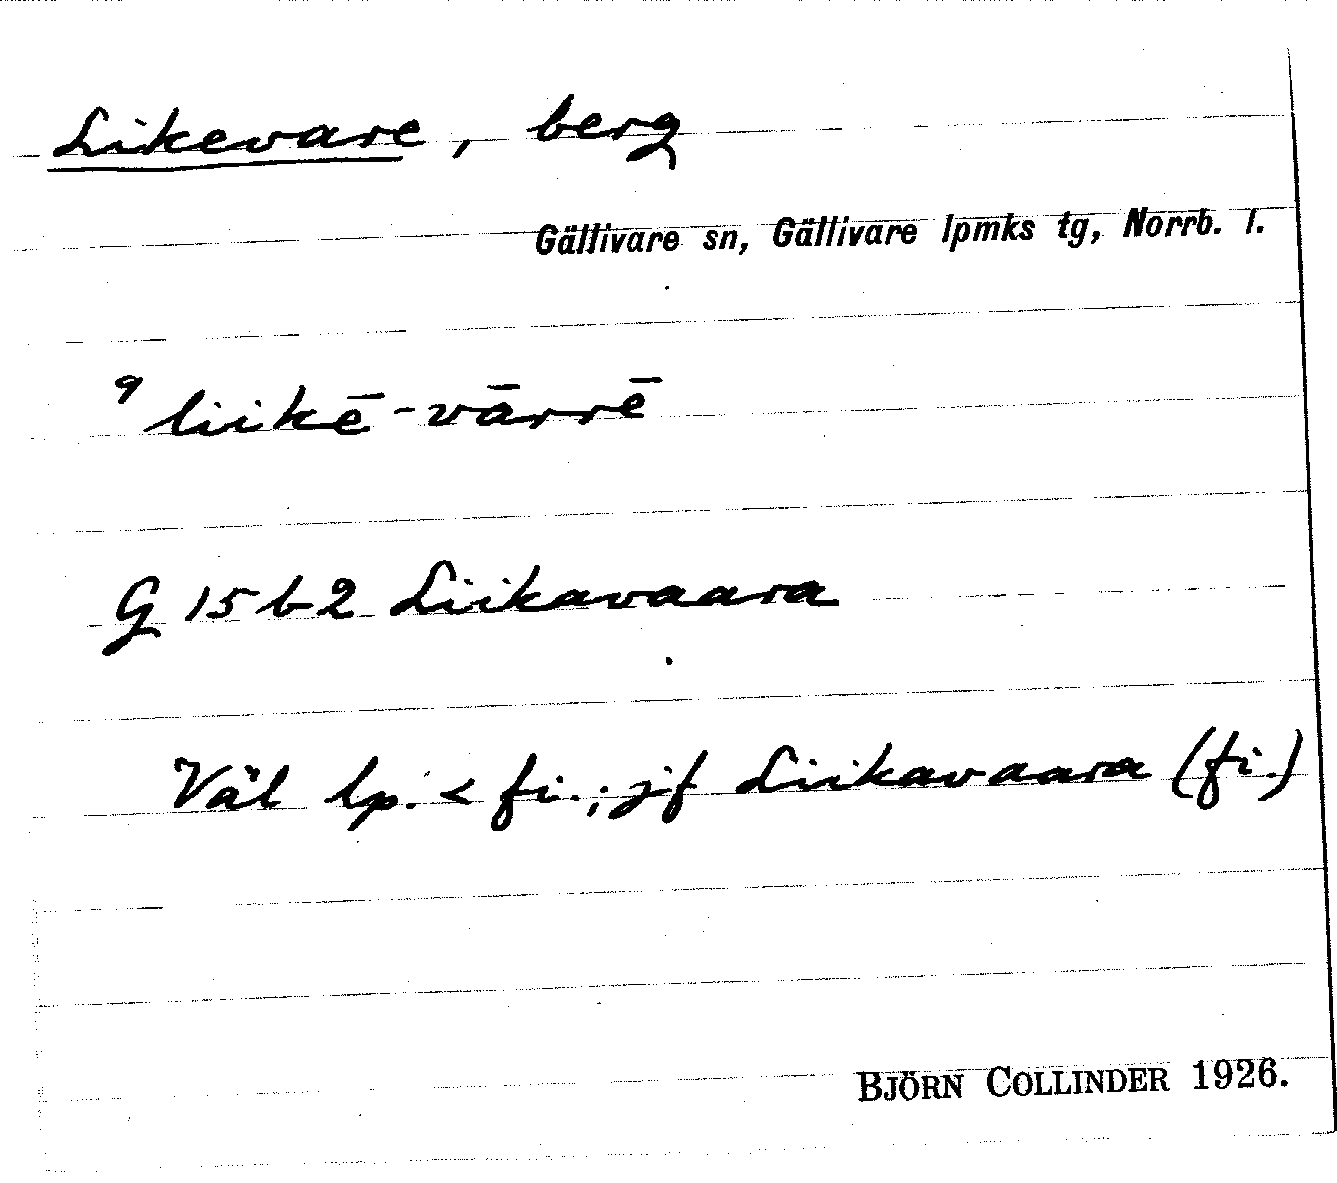 Likevare, berg
Gällivare sn, Gällivare lpmks tg, Norrb. l.
⁹ liikē-vārrē
G 15 b 2 Liikavaara
Väl lp. < fi.; jf Liikavaara (fi.)
BJÖRN COLLINDER 1926.